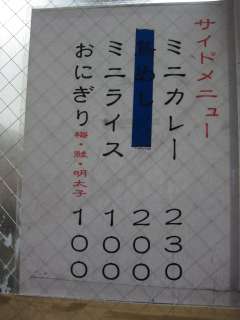 サイドメニュー
ミニカレー 230
めし 200
ミニライス 100
おにぎり 梅・鮭・明太子 100